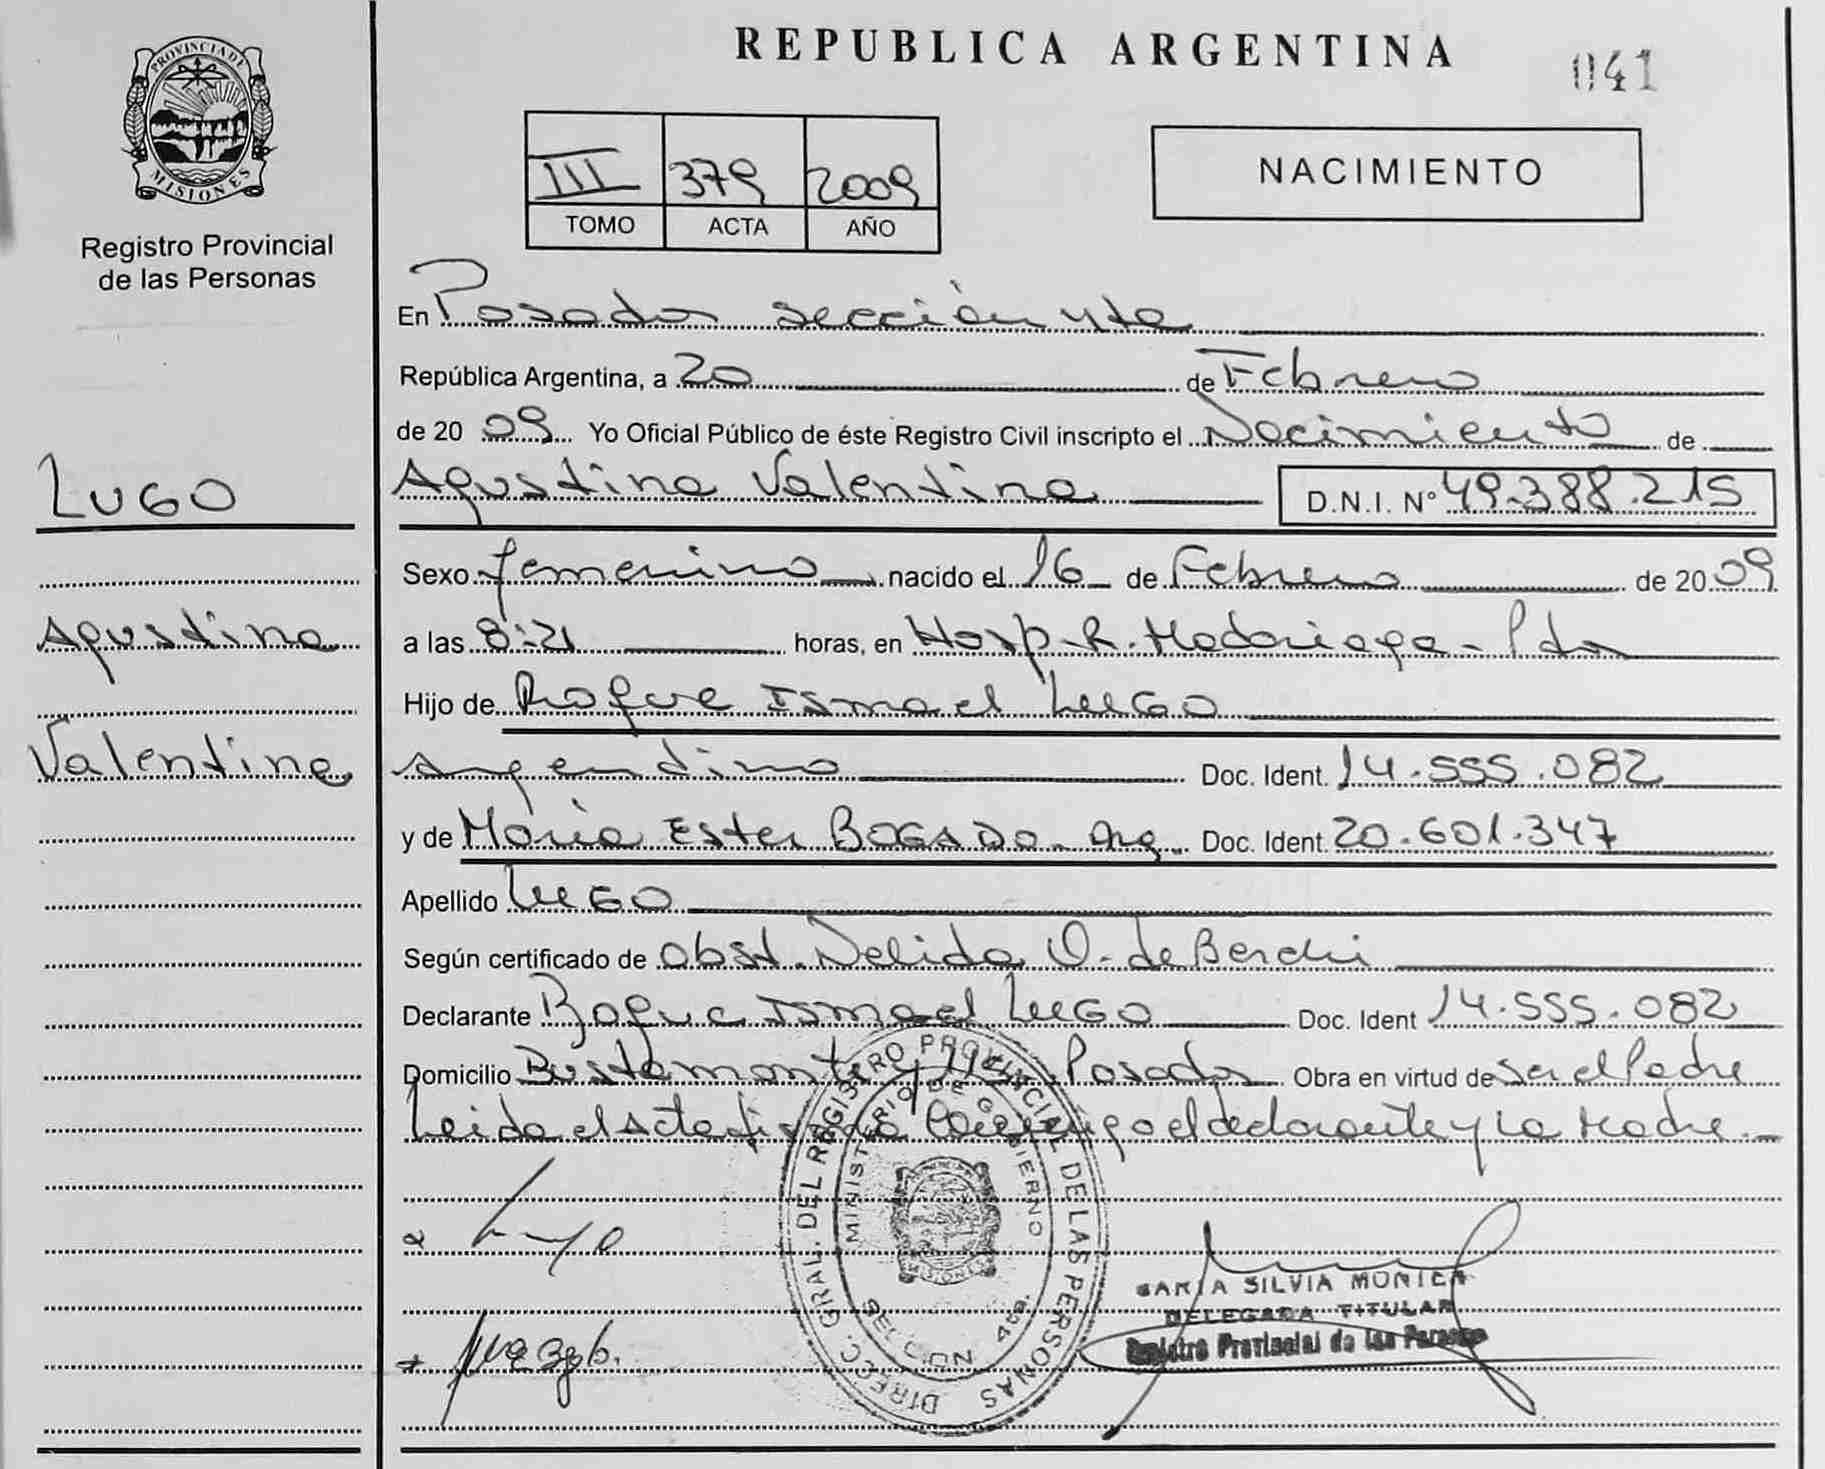 PROVINCIA DE
MISIONES
Registro Provincial
de las Personas
REPUBLICA ARGENTINA
041
III 379 2009
TOMO ACTA AÑO
NACIMIENTO
En Posadas sección 4ta
República Argentina, a 20 de Febrero
de 20 09 Yo Oficial Público de éste Registro Civil inscripto el Nacimiento de
LUGO
Agustina Valentina D.N.I. Nº 49.388.215
Sexo femenino nacido el 16 de Febrero de 20 09
Agustina
a las 8:21 horas, en Hosp. R. Madariaga - Pdas
Hijo de Roque Ismael LUGO
Valentina
Argentino Doc. Ident. 14.555.082
y de María Ester BOGADO - Arg. Doc. Ident 20.601.347
Apellido LUGO
Según certificado de Obst. Nelida O. de Berchi
Declarante Roque Ismael LUGO Doc. Ident 14.555.082
Domicilio Bustamante y Posadas Obra en virtud de Ser el Padre
Leida el Acta firma Conmigo el declarante y La Madre.
DIRECC. GRAL. DEL REGISTRO PROVINCIAL DE LAS PERSONAS
MINISTERIO DE GOBIERNO
MISIONES
SECCION 4ta.
Lugo
SILVIA MONICA
DELEGADA TITULAR
Registro Provincial de las Personas